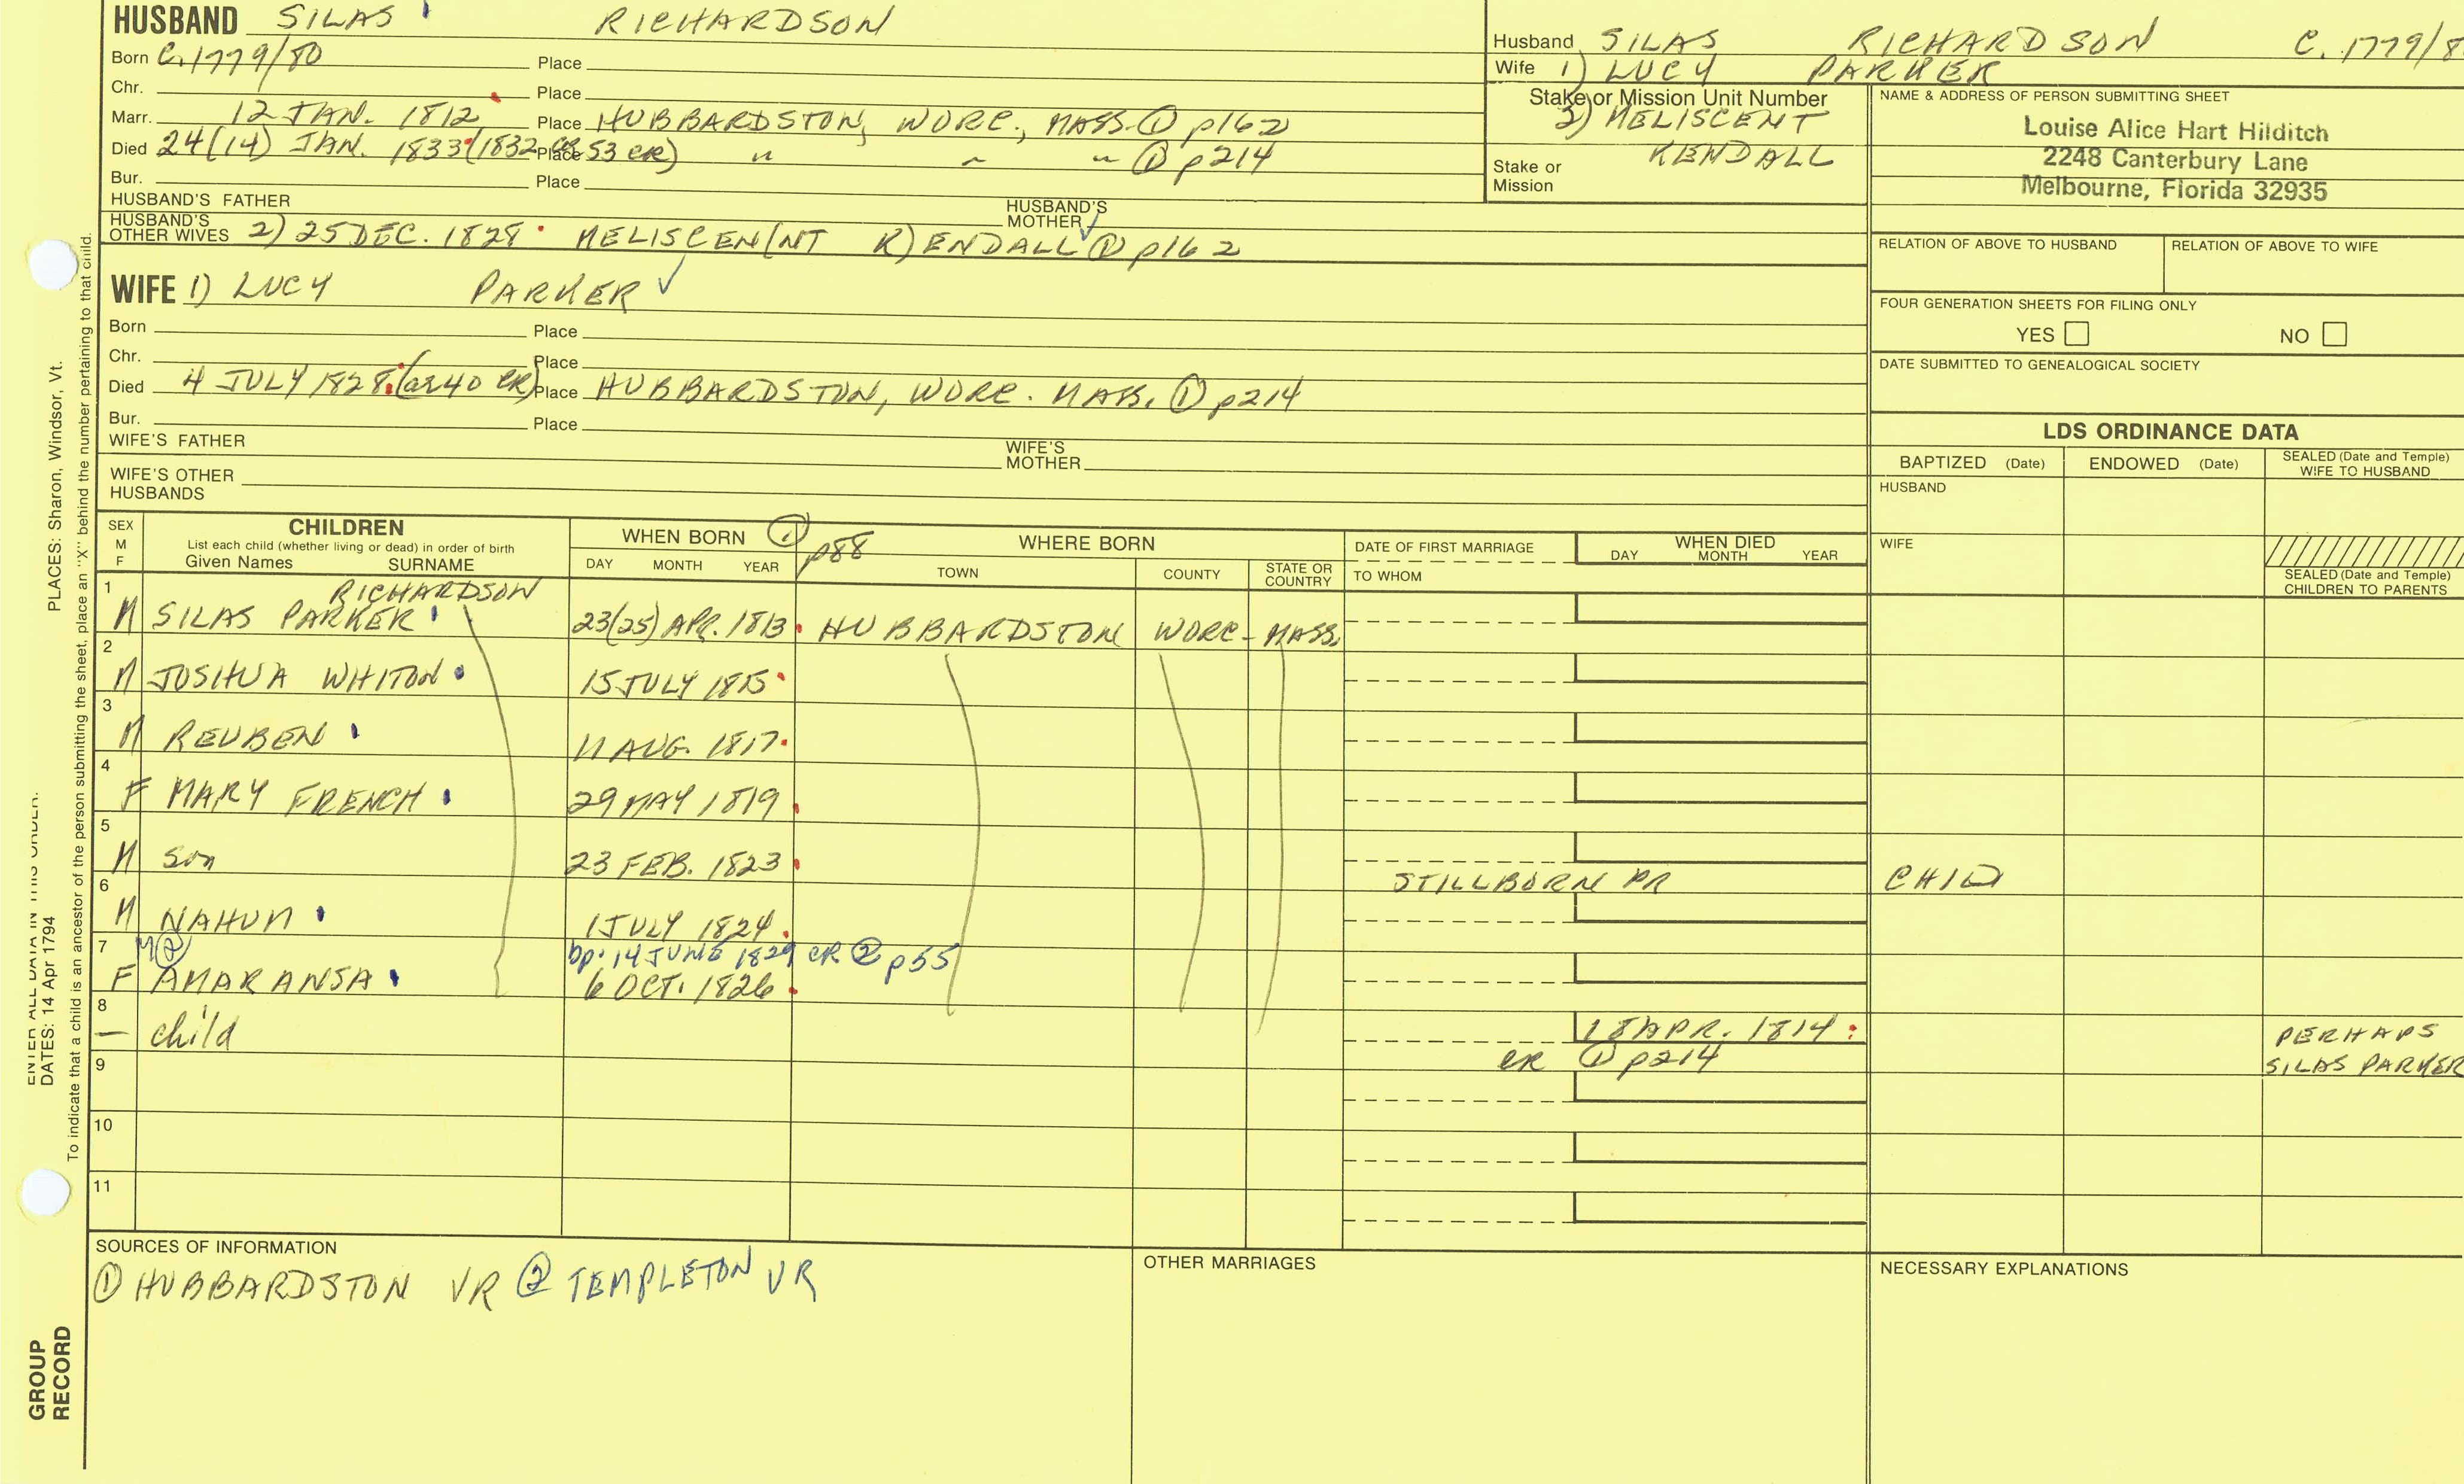 HUSBAND SILAS RICHARDSON
Born C. 1779/80 Place
Chr. Place
Marr. 12 JAN. 1812 Place HUBBARDSTON, WORC., MASS. ① p162
Died 24(14) JAN. 1833 (1832 ae 53 CR) Place " " " ① p214
Bur. Place
HUSBAND'S FATHER
HUSBAND'S MOTHER
HUSBAND'S OTHER WIVES 2) 25 DEC. 1828 MELISCEN(NT K)ENDALL ① p162
WIFE 1) LUCY PARKER
Born Place
Chr. Place
Died 4 JULY 1828 (ae 40 CR) Place HUBBARDSTON, WORC. MASS. ① p214
Bur. Place
WIFE'S FATHER
WIFE'S MOTHER
WIFE'S OTHER HUSBANDS
Husband SILAS RICHARDSON C. 1779/8
Wife 1) LUCY PARKER
Stake or Mission Unit Number
2) MELISCENT
KENDALL
Stake or Mission
NAME & ADDRESS OF PERSON SUBMITTING SHEET
Louise Alice Hart Hilditch
2248 Canterbury Lane
Melbourne, Florida 32935
RELATION OF ABOVE TO HUSBAND
RELATION OF ABOVE TO WIFE
FOUR GENERATION SHEETS FOR FILING ONLY
YES NO
DATE SUBMITTED TO GENEALOGICAL SOCIETY
LDS ORDINANCE DATA
BAPTIZED (Date) ENDOWED (Date) SEALED (Date and Temple) WIFE TO HUSBAND
HUSBAND
WIFE
SEALED (Date and Temple) CHILDREN TO PARENTS
SEX M F
CHILDREN
List each child (whether living or dead) in order of birth
Given Names SURNAME
WHEN BORN ① p88
DAY MONTH YEAR
WHERE BORN
TOWN COUNTY STATE OR COUNTRY
DATE OF FIRST MARRIAGE
TO WHOM
WHEN DIED
DAY MONTH YEAR
RICHARDSON
1 M SILAS PARKER 23(25) APR. 1813 HUBBARDSTON WORC- MASS.
2 M JOSHUA WHITON 15 JULY 1815
3 M REUBEN 11 AUG. 1817
4 F MARY FRENCH 29 MAY 1819
5 M son 23 FEB. 1823
STILLBORN PR CHILD
6 M NAHUM 1 JULY 1824
M② bp. 14 JUNE 1829 CR ② p55
7 F AMARANSA 6 OCT. 1826
8 — child 18 APR. 1814 PERHAPS
CR ① p214 SILAS PARKER
9
10
11
SOURCES OF INFORMATION
① HUBBARDSTON VR ② TEMPLETON VR
OTHER MARRIAGES
NECESSARY EXPLANATIONS
PLACES: Sharon, Windsor, Vt.
To indicate that a child is an ancestor of the person submitting the sheet, place an "X" behind the number pertaining to that child.
ENTER ALL DATA IN THIS ORDER:
DATES: 14 Apr 1794
GROUP
RECORD